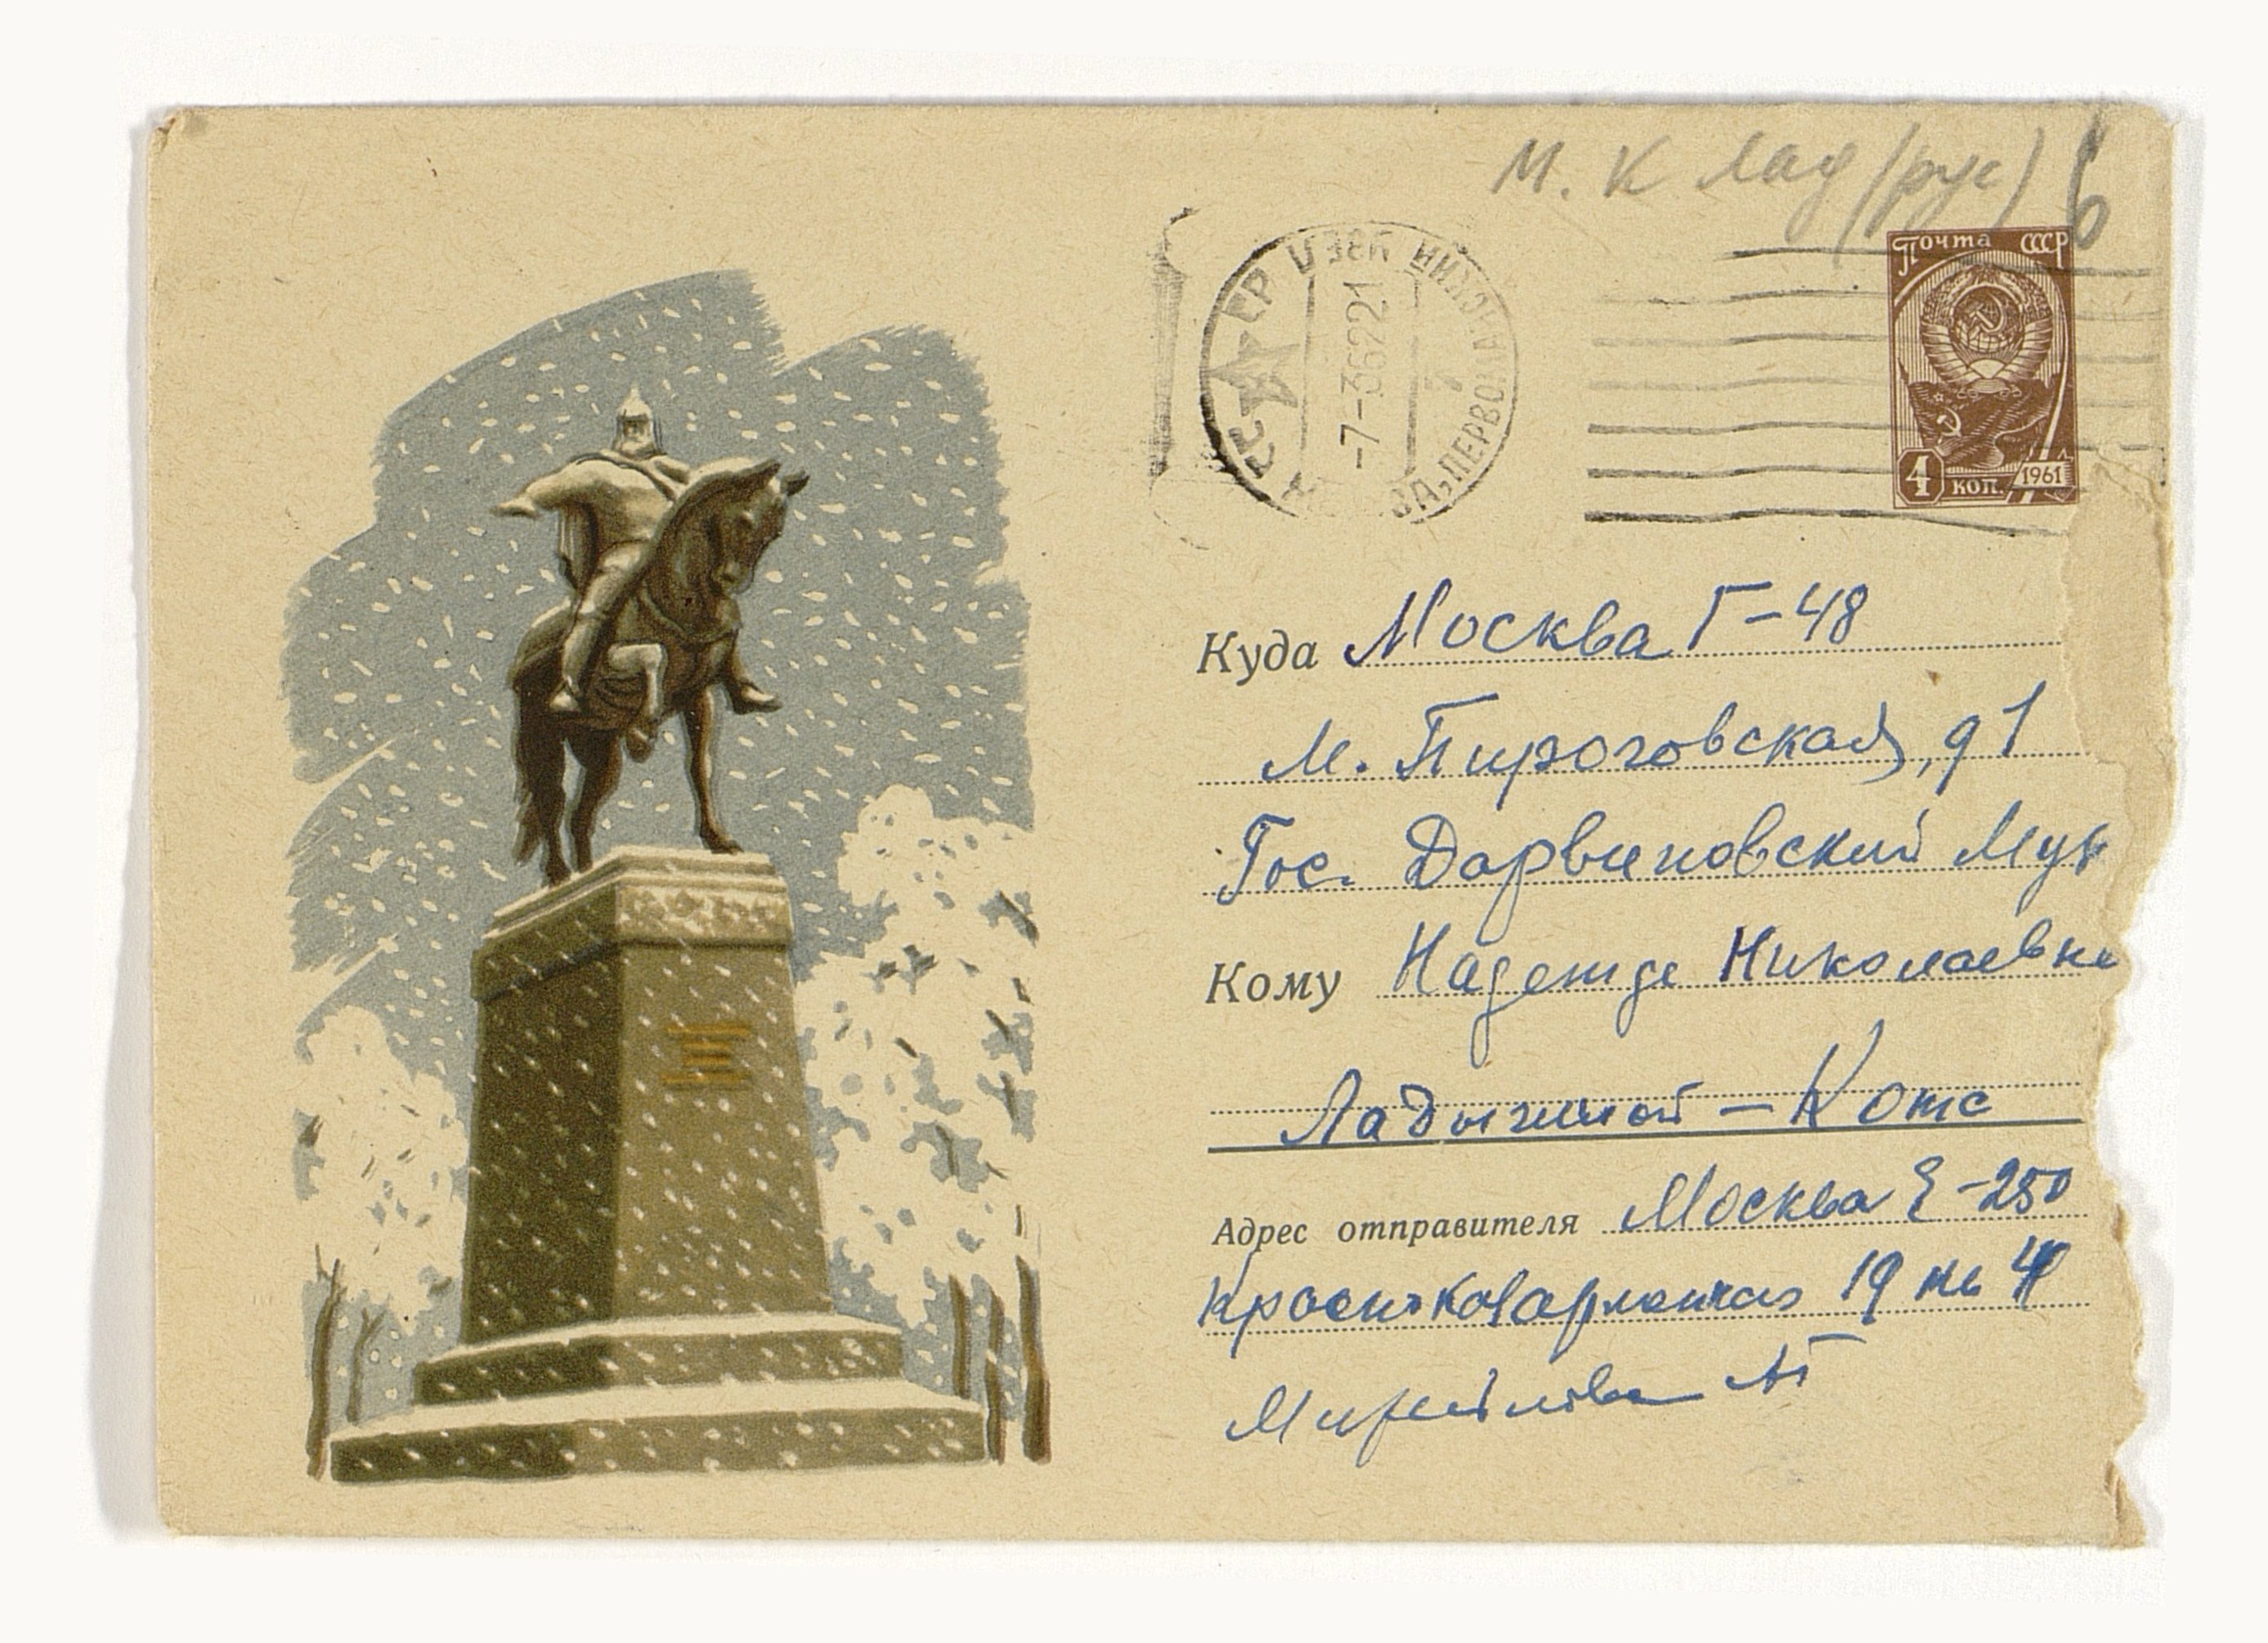 М. К Лад (рус) 6
Почта СССР
4 коп. 1961
-7-36221
Куда Москва Г-48
М. Пироговская, д 1
Гос. Дарвиновский Муз
Кому Надежде Николаевне
Ладыгиной-Котс
Адрес отправителя Москва Е-250
Красноказарменная 19 кв